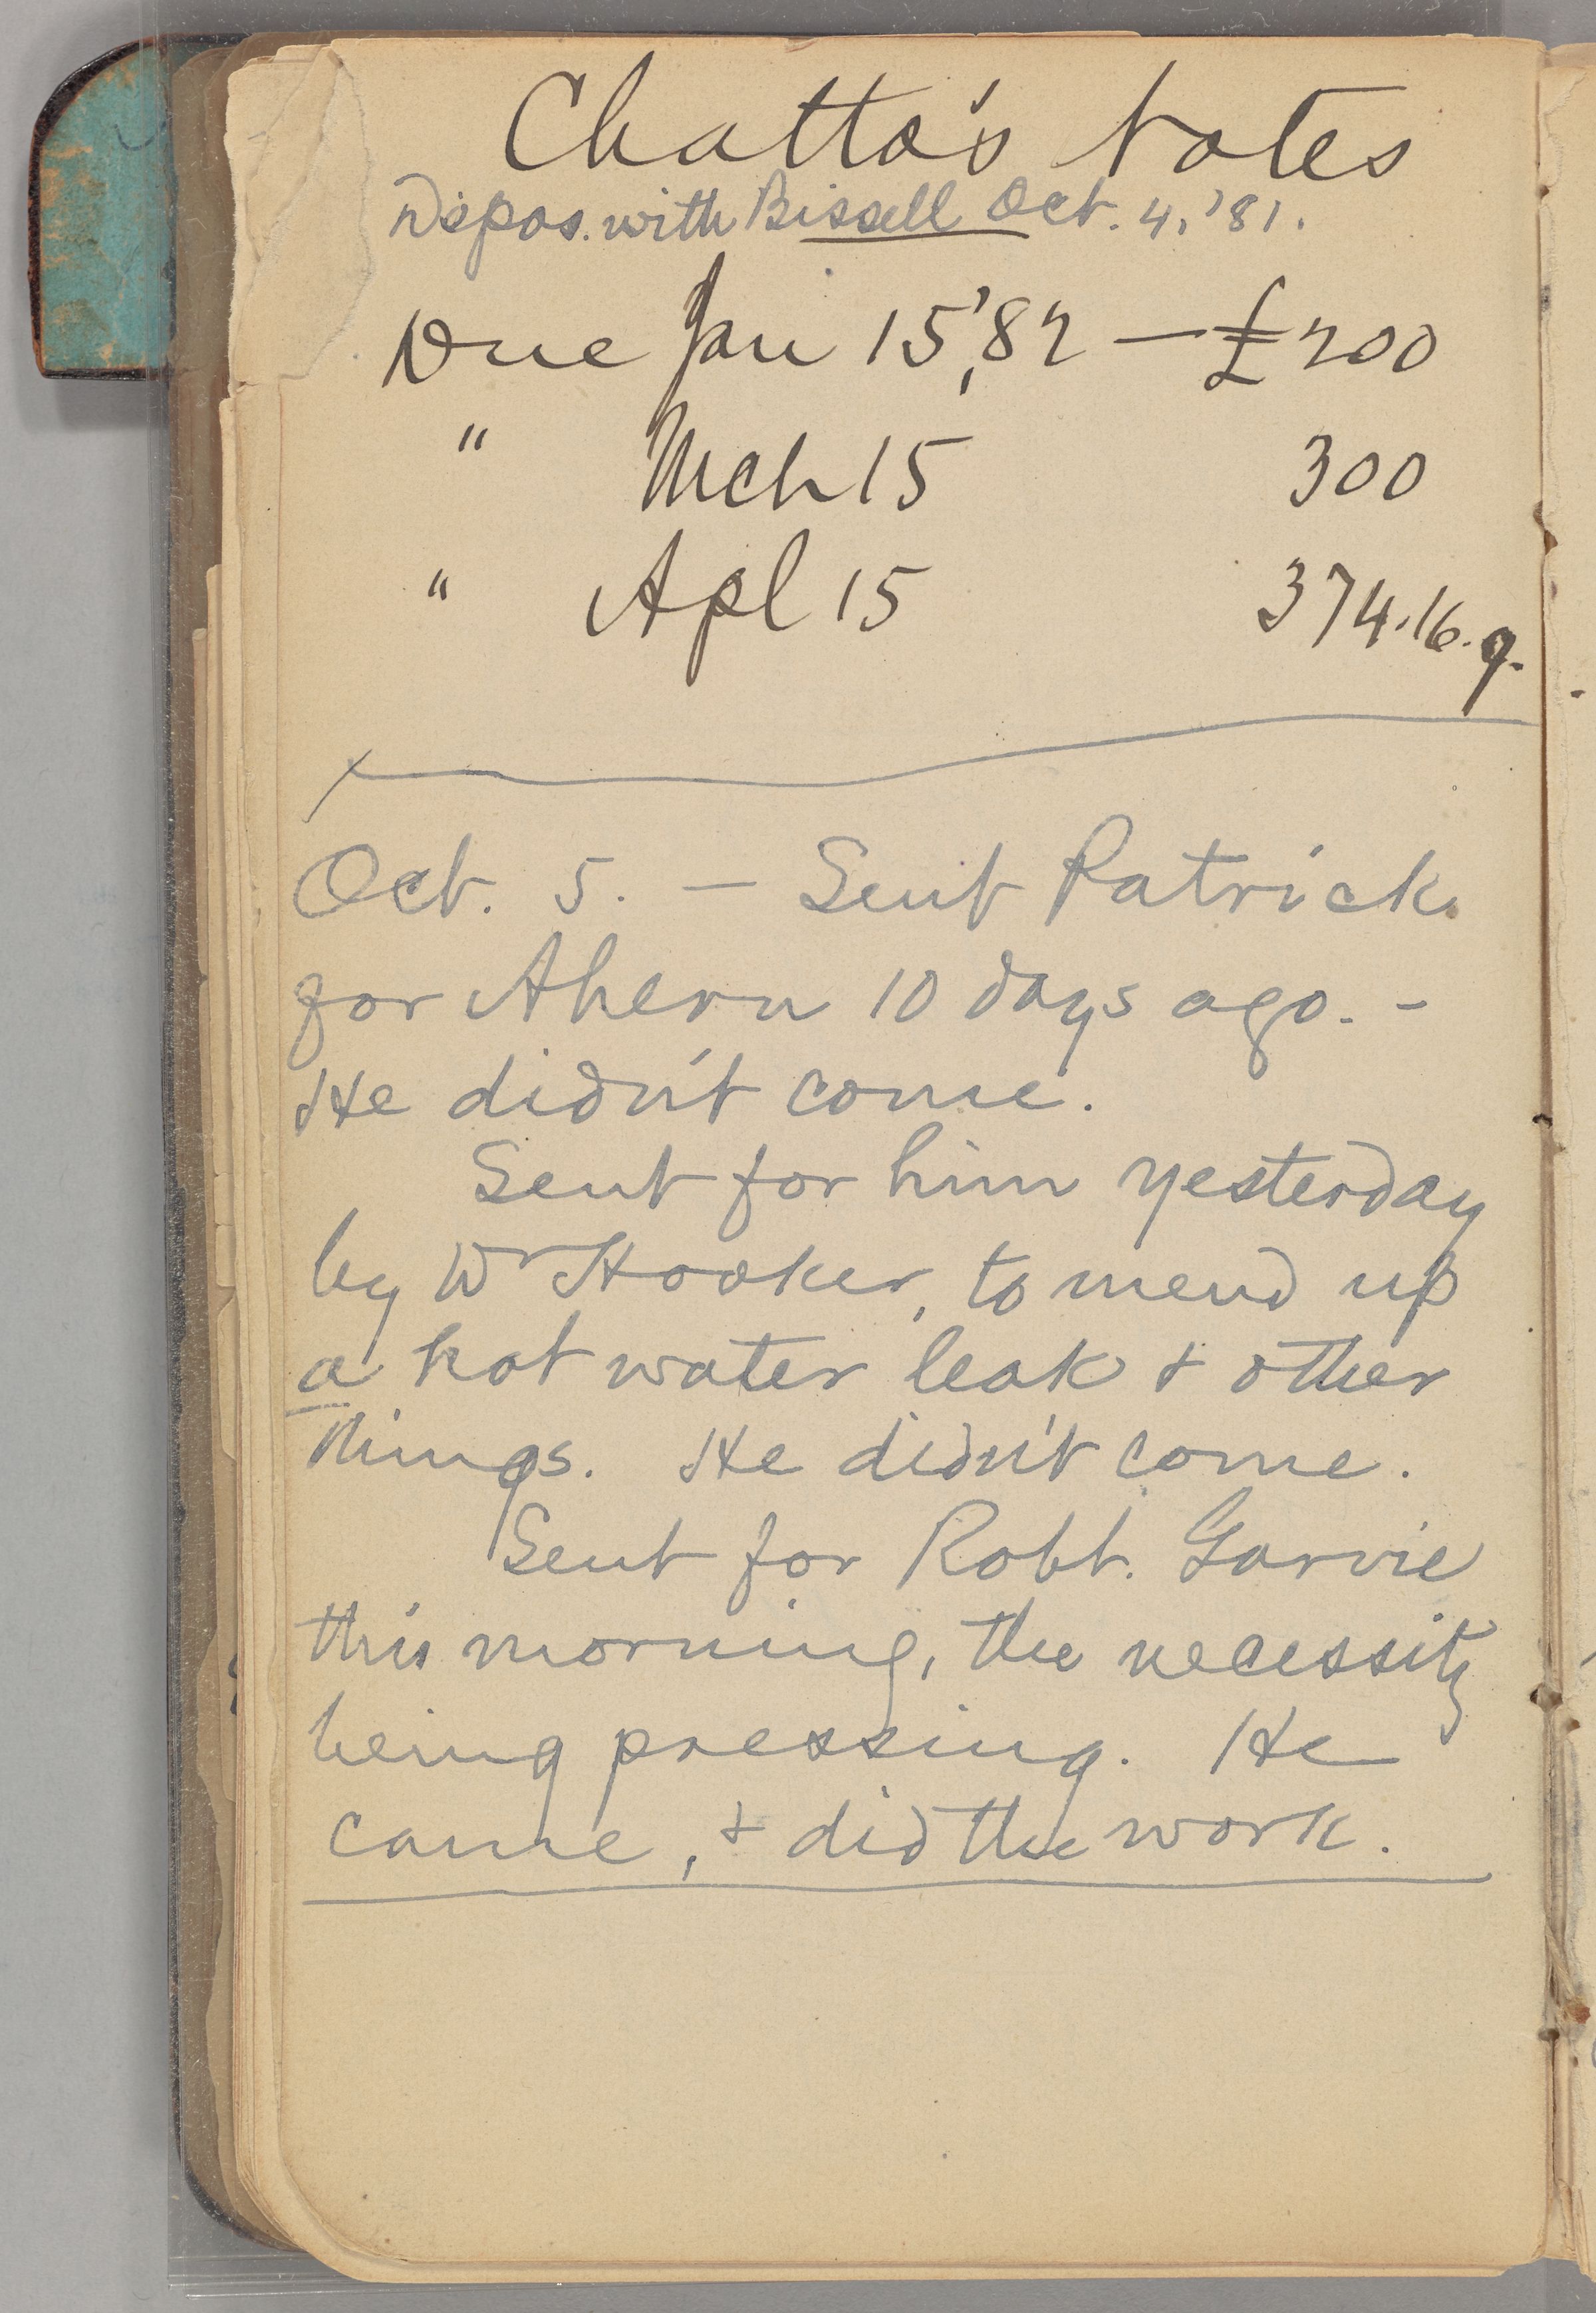 Chatto's Notes
Depos. with Bissell Oct. 4, '81.
Due Jan 15, '82 — £200
" Mch 15 300
" Apl 15 374.16.9.
Oct. 5. — Sent Patrick
for Ahern 10 days ago. –
He didn't come.
Sent for him yesterday
by Dr Hooker, to mend up
a hot water leak & other
things. He didn't come.
Sent for Robt. Garvie
this morning, the necessity
being pressing. He
came, & did the work.